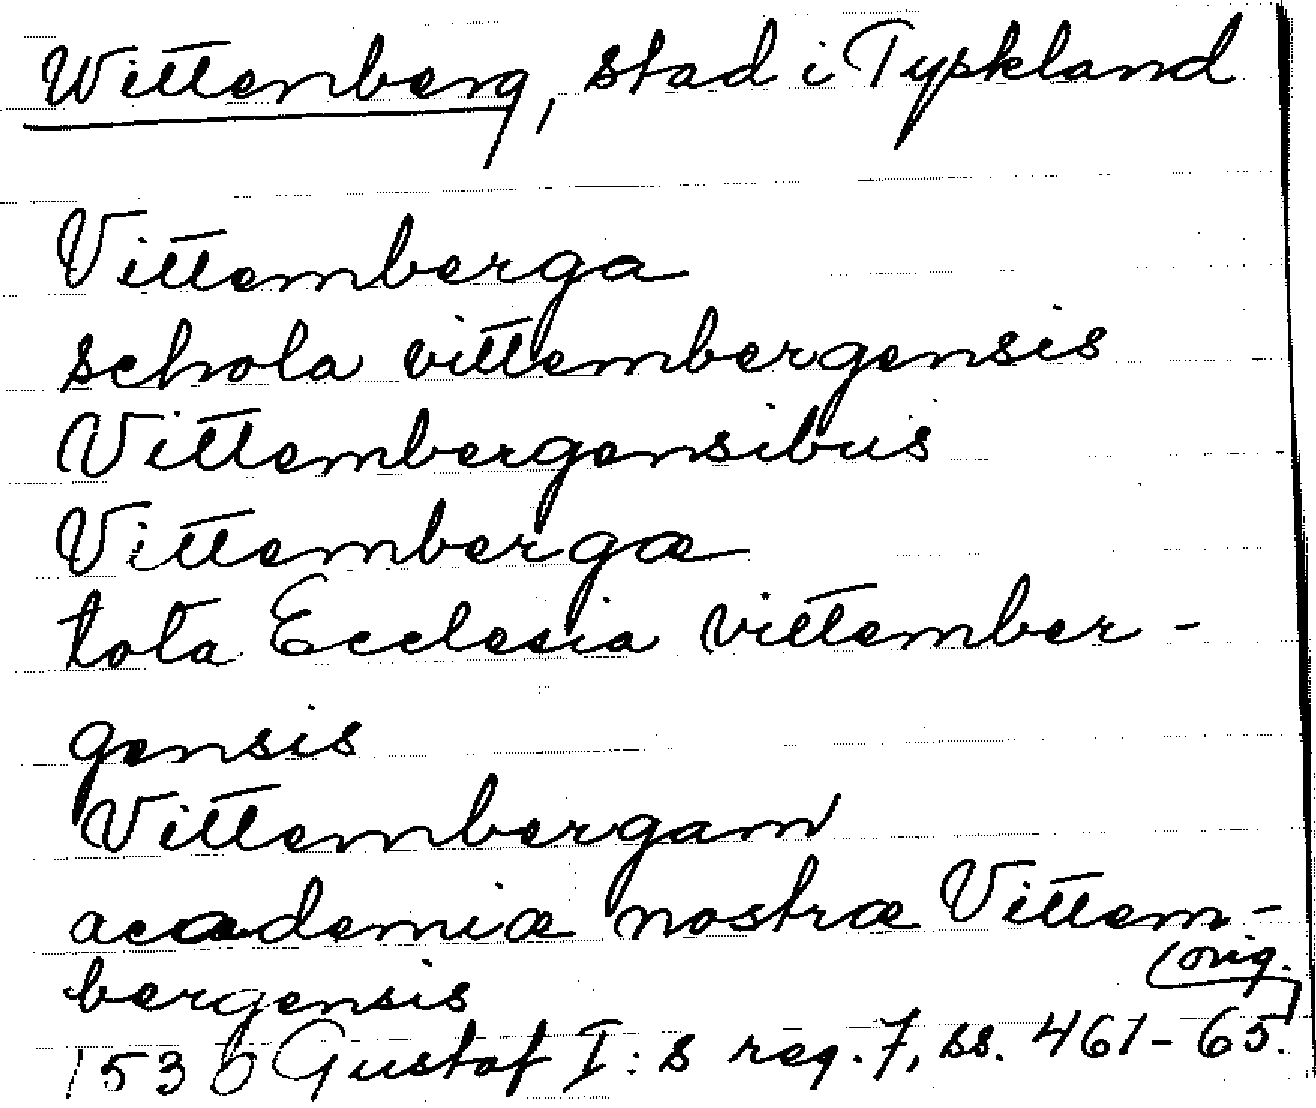 Wittenberg, stad i Tyskland
Vittemberga
schola vittembergensis
Vittembergensibus
Vittembergæ
tota Ecclesia vittember-
gensis
Vittembergam
academiæ nostræ Vittem-
bergensis
(orig.)
1530 Gustaf I:s reg. 7, ss. 461-65.